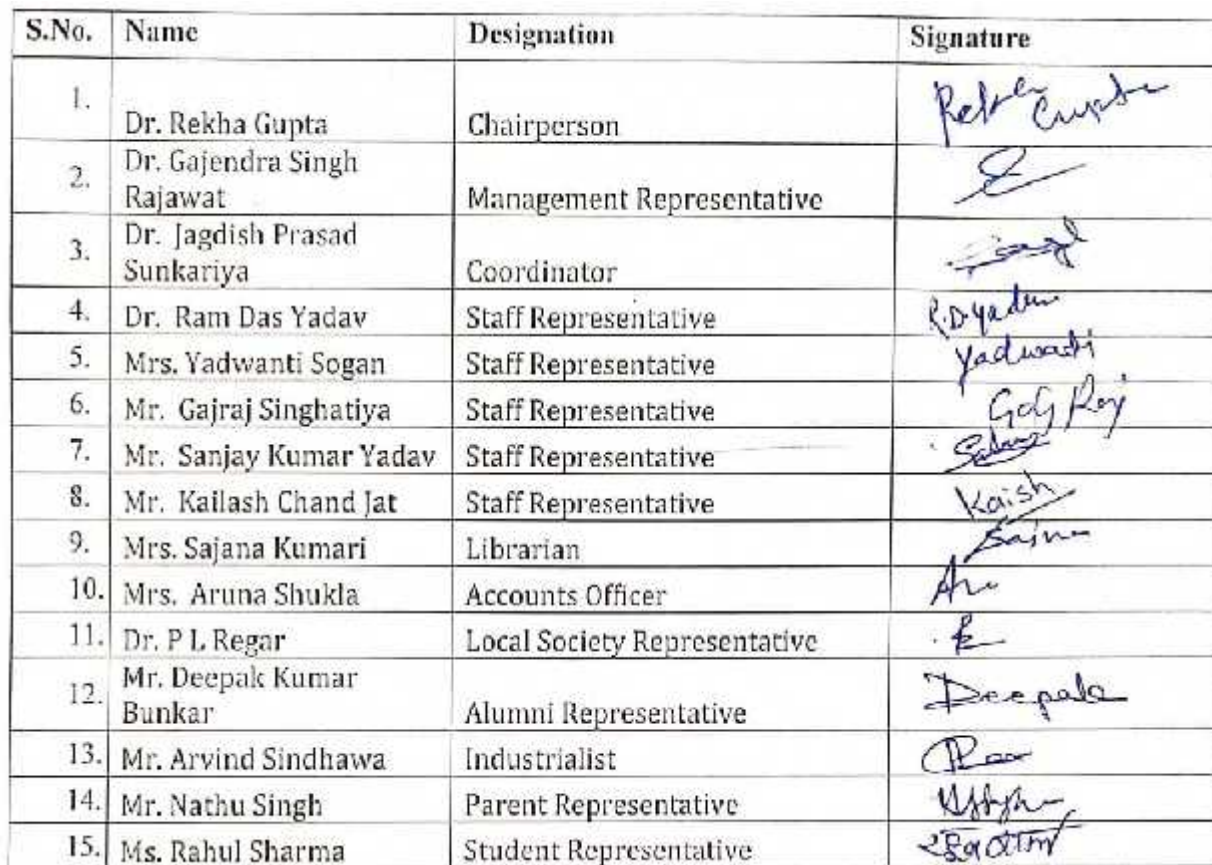 S.No. Name Designation Signature
1. Dr. Rekha Gupta Chairperson Rekha Gupta
2. Dr. Gajendra Singh
Rajawat Management Representative
3. Dr. Jagdish Prasad
Sunkariya Coordinator
4. Dr. Ram Das Yadav Staff Representative R.D yadav
5. Mrs. Yadwanti Sogan Staff Representative Yadwanti
6. Mr. Gajraj Singhatiya Staff Representative
7. Mr. Sanjay Kumar Yadav Staff Representative
8. Mr. Kailash Chand Jat Staff Representative Kaish
9. Mrs. Sajana Kumari Librarian
10. Mrs. Aruna Shukla Accounts Officer
11. Dr. P L Regar Local Society Representative
12. Mr. Deepak Kumar
Bunkar Alumni Representative Deepak
13. Mr. Arvind Sindhawa Industrialist
14. Mr. Nathu Singh Parent Representative
15. Ms. Rahul Sharma Student Representative